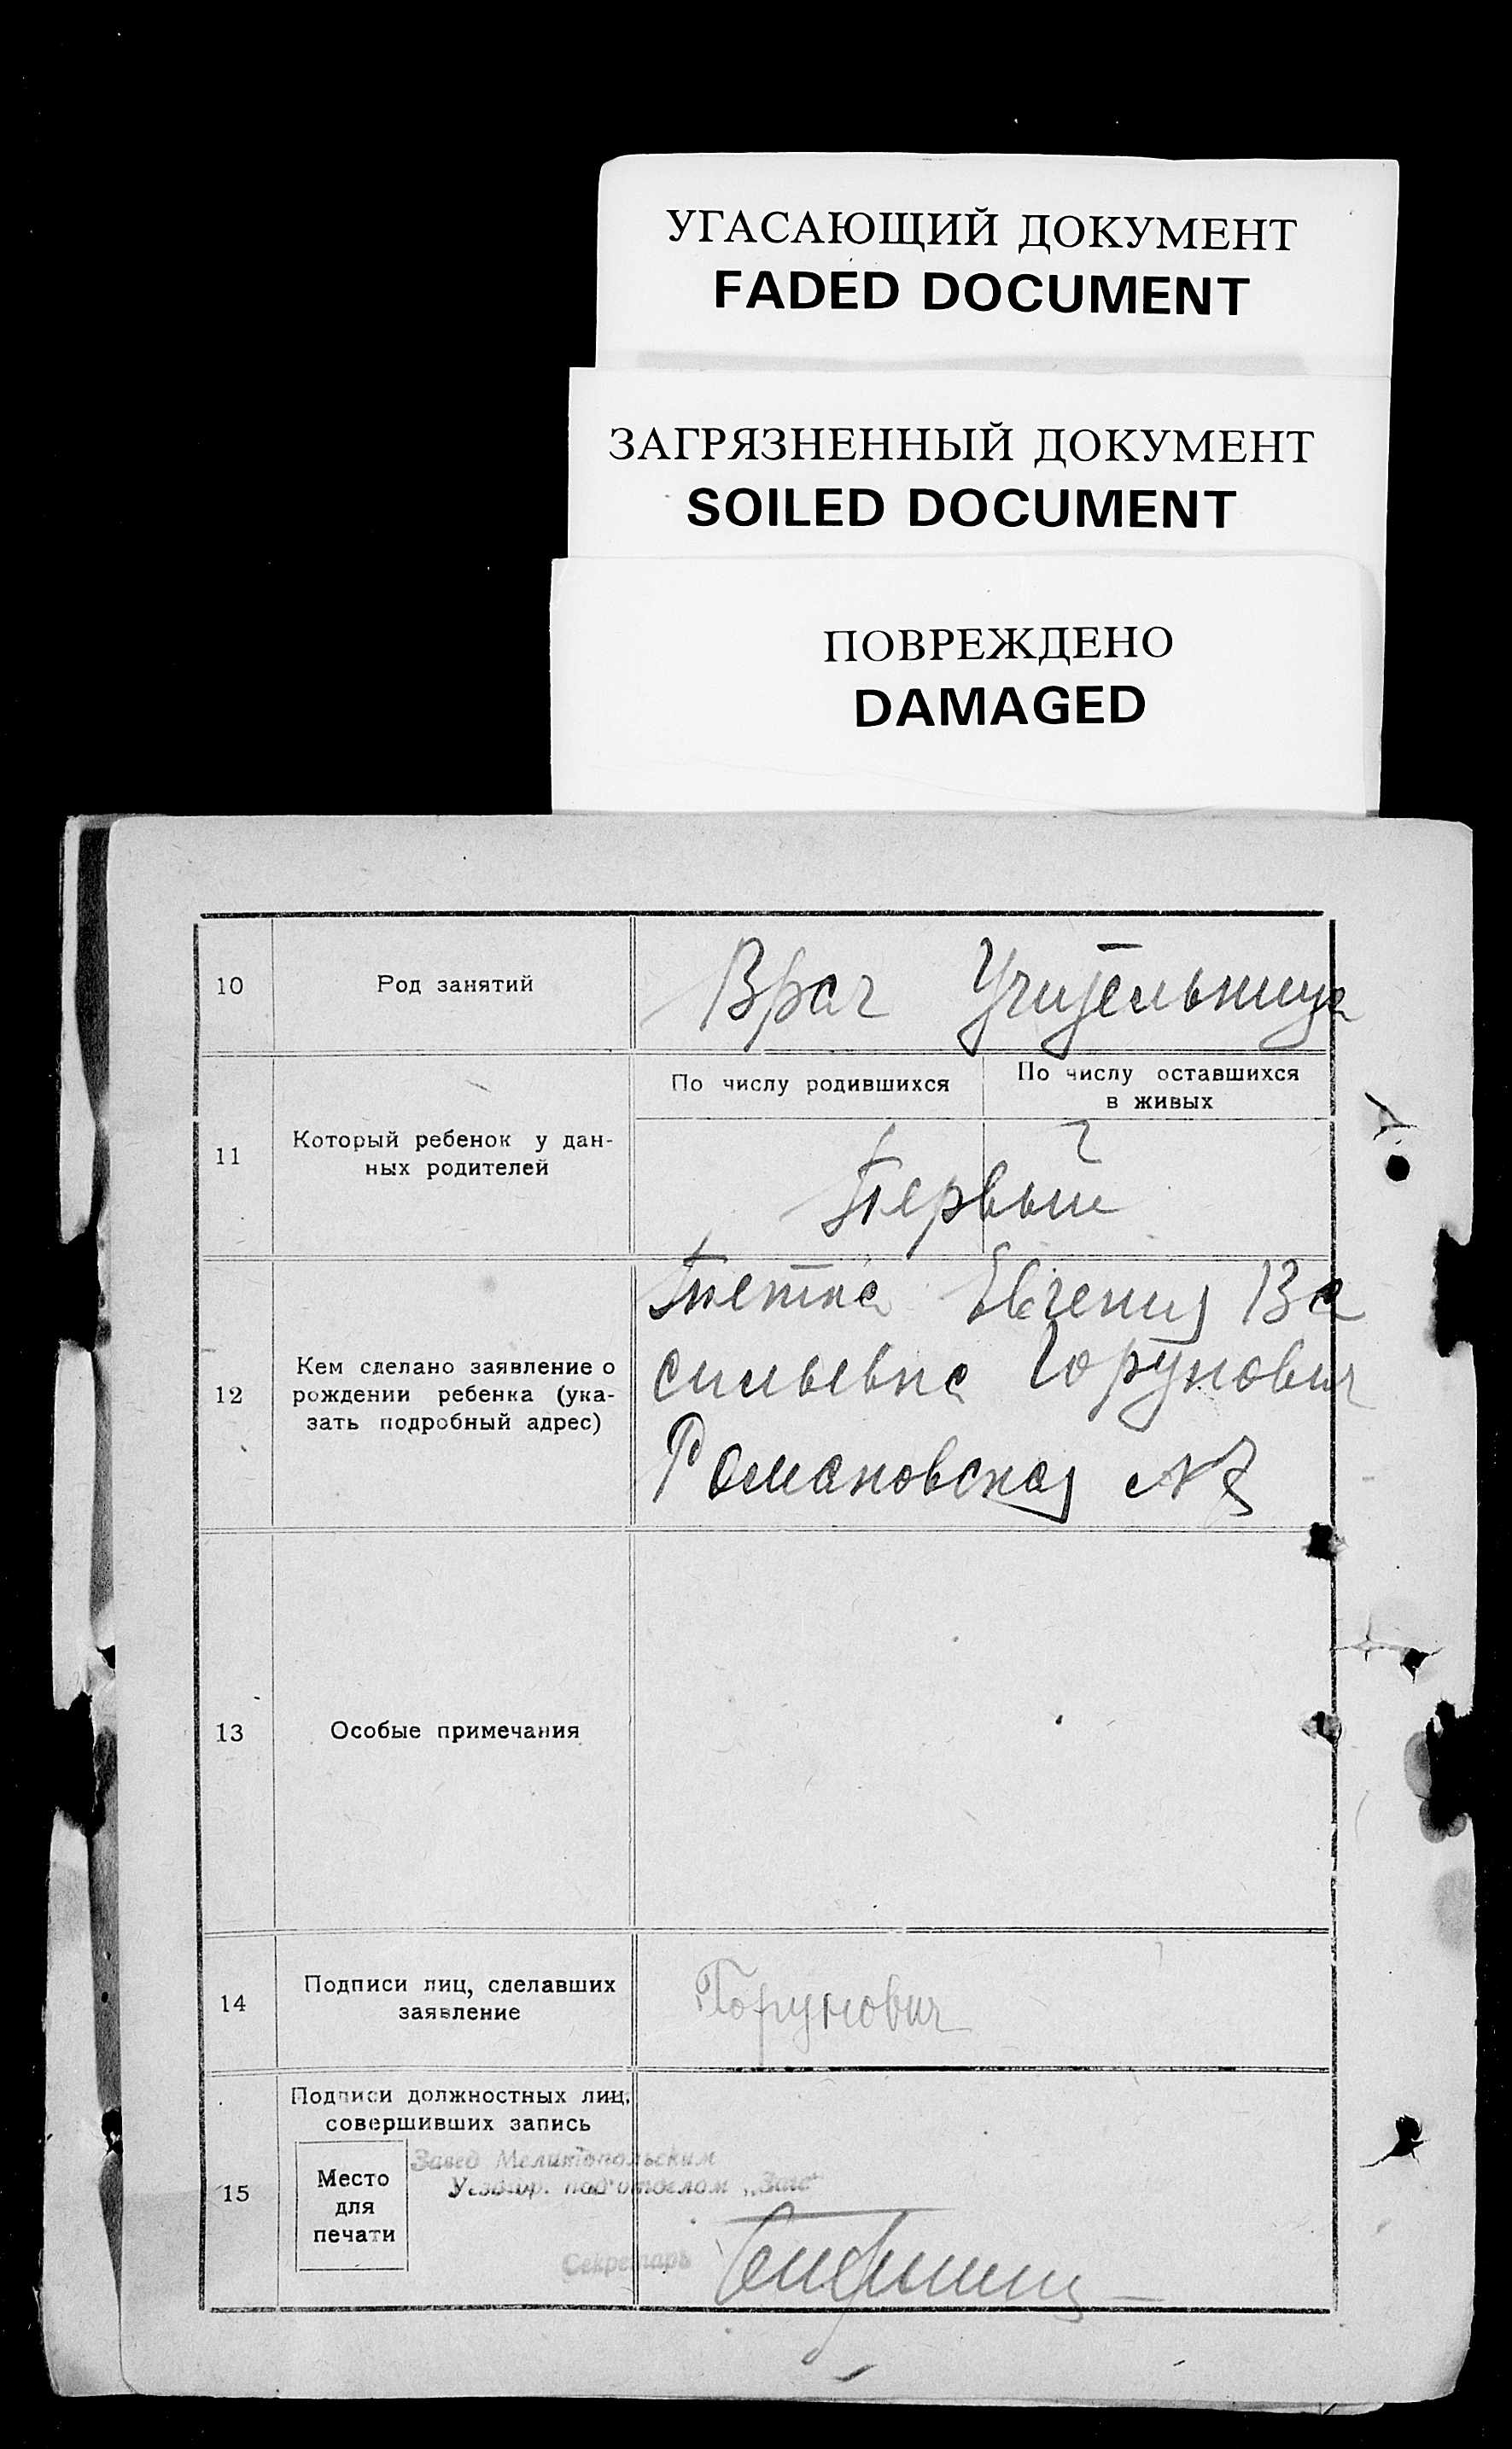 УГАСАЮЩИЙ ДОКУМЕНТ
FADED DOCUMENT
ЗАГРЯЗНЕННЫЙ ДОКУМЕНТ
SOILED DOCUMENT
ПОВРЕЖДЕНО
DAMAGED
10
Род занятий
Врач Учительница
11
Который ребенок у дан-
ных родителей
По числу родившихся
По числу оставшихся
в живых
Первый
12
Кем сделано заявление о
рождении ребенка (ука-
зать подробный адрес)
Тетка Евгения Ва
сильевна Горунович
Романовская №
13
Особые примечания
14
Подписи лиц, сделавших
заявление
Горунович
15
Подписи должностных лиц,
совершивших запись
Место
для
печати
Завед Мелитопольским
Уездгор. подотделом „Загс"
Секретарь